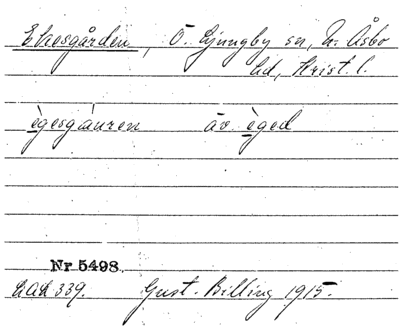 Ekesgården, Ö. Ljungby sn, N. Åsbo
hd, Krist. l.
ègesgáuren äv. èged
Nr. 5498.
Lad 339. Gust. Billing 1915.